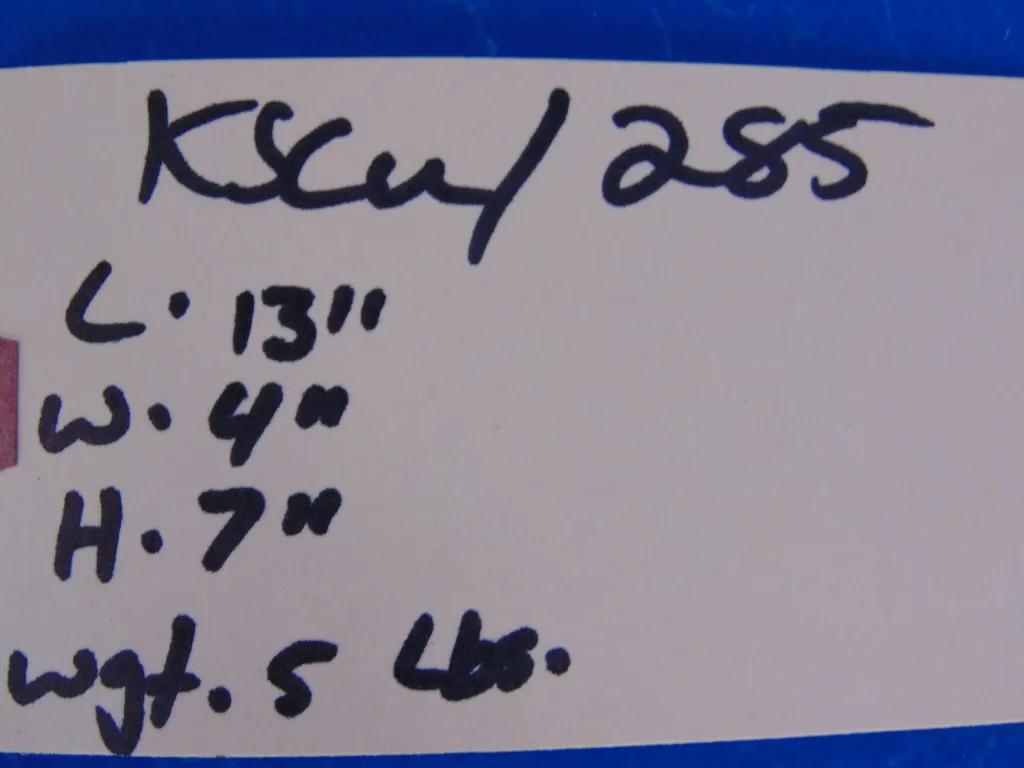 KSCW/285
L. 13"
W. 4"
H. 7"
wgt. 5 Lbs.